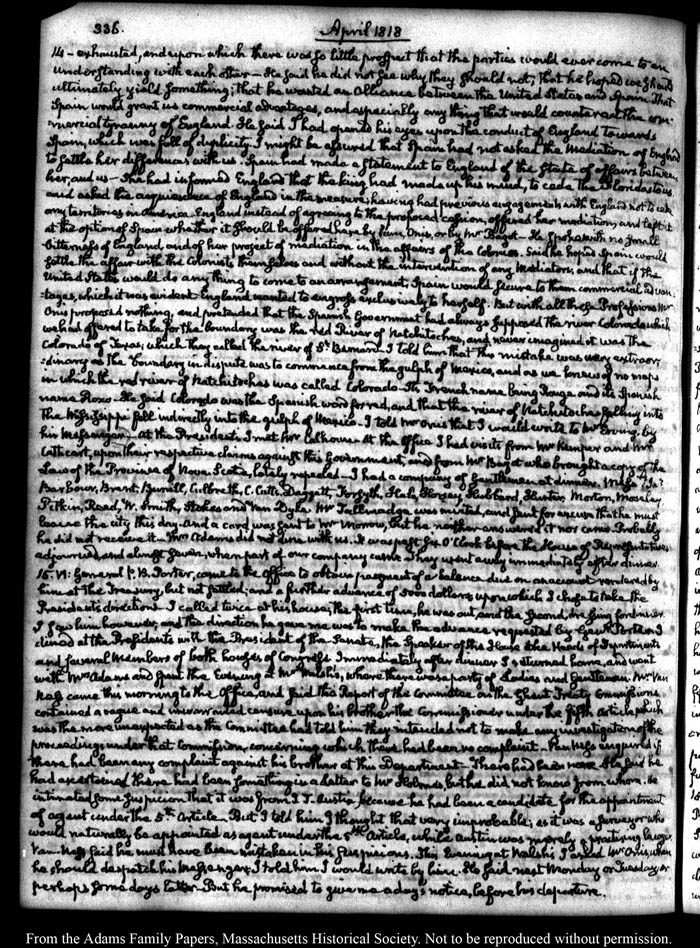 336.
April 1818
14 – exhausted, and upon which there was so little prospect that the parties would ever come to an
understanding with each other – He said he did not see why they should not; that he hoped we should
ultimately yield something; that he wanted an Alliance between the United States and Spain. That
Spain would grant us commercial advantages, and especially any thing that would counteract the com-
mercial tyranny of England. He said I had opened his eyes upon the conduct of England towards
Spain, which was full of duplicity. I might be assured that Spain had not asked the Mediation of England
to settle her differences with us. Spain had made a statement to England of the State of affairs between
her, and us – She had informed England that the king had made up his mind, to cede the Floridas to us
and asked the acquiescence of England in the measure, having had previous engagements with England not to cede
any territories in America. England instead of agreeing to the proposed cession, offered her mediation, and left it
at the option of Spain whether it should be offered here by him, Onis, or by Mr Bagot – He spoke with no small
bitterness of England, and of her project of mediation in the affairs of the Colonies. Said he hoped Spain would
settle the affair with the Colonists themselves and without the intervention of any Mediators, and that if the
United States would do any thing to come to an arrangement, Spain would secure to them commercial advan-
tages, which it was evident England wanted to engross exclusively to herself. But with all these Professions Mr
Onis proposed nothing, and pretended that the Spanish Government had always supposed the river Colorado which
we had offered to take for the boundary was the red River of Natchitoches, and never imagined it was the
Colorado of Texas, which they called the river of St. Bernard. I told him that this mistake was very extraor-
dinary as the boundary in dispute was to commence from the gulph of Mexico, and as we knew of no map
in which the red river of Natchitoches was called Colorado. The French name being Rouge and its Spanish
name Roxo. He said Colorado was the Spanish word for red, and that the river of Natchitoches falling into
the Mississippi fell indirectly into the gulph of Mexico – I told Mr Onis that I would write to Mr Erving, by
his Messenger – at the Presidents I met Mr Calhoun. At the Office I had visits from Mr Kemper and Mr
Cathcart, upon their respective claims against this Government, and from Mr Bagot who brought a copy of the
Law of the Province of Nova Scotia, lately repealed – I had a company of Gentlemen at dinner. Messrs Ja:
Barbour, Brent, Burrill, Culbreth, C. Cutts, Daggett, Forsyth, Hale, Horsey, Hubbard, Hunter, Morton, Moseley
Pitkin, Reed, W. Smith, Stokes and Van Dyke. Mr Tallmadge was invited, and sent for excuse that he must
leave the city this day. And a card was sent to Mr Morrow, but he neither answered it nor came. Probably
he did not receive it – Mrs Adams did not dine with us. It was past six O'Clock before the House of Representatives
adjourned, and almost seven, when part of our company came. They went away immediately after dinner.
15. VI: General P. B. Porter, came to the Office to obtain payment of a balance due on an account rendered by
him at the Treasury, but not settled; and a further advance of 5000 dollars, upon which I chose to take the
Presidents direction. I called twice at his house; the first time, he was out, and the second, dressing for dinner.
I saw him however, and the direction he gave me was to make the advance requested by Genl. Porter. I
dined at the Presidents with the President of the Senate, the Speaker of the House the Heads of Departments
and several Members of both houses of Congress. Immediately after dinner I returned home, and went
with Mrs Adams and spent the Evening at Mr Walsh's, where there was a party of Ladies and Gentlemen. Mr Van
Ness came this morning to the Office, and said this Report of the Committee on the Ghent Treaty Commissions
contained a vague and unwarranted censure upon his brother the Commissioner under the fifth Article, which
was the more unexpected as the Committee had told him they intended not to make any investigation of the
proceedings under that Commission, concerning which there had been no complaint – Van Ness enquired if
there had been any complaint against his brother at this Department – There had been none. He said he
had ascertained there had been something in a letter to Mr Holmes, but he did not know from whom. He
intimated some suspicion that it was from J. T. Austin because he had been a candidate for the appointment
of agent under the 5th Article. But I told him I thought that very improbable; as it was a surveyor who
would naturally be appointed as agent under the 5th Article, while Austin was merely a practising lawyer
Van Ness said he must have been mistaken in his suspicions. This Evening at Walsh's I asked Mr Onis, when
he should despatch his Messenger. I told him I would write by him. He said next Monday or Tuesday, or
perhaps some days later. But he promised to give me a day's notice, before his departure.
From the Adams Family Papers, Massachusetts Historical Society. Not to be reproduced without permission.